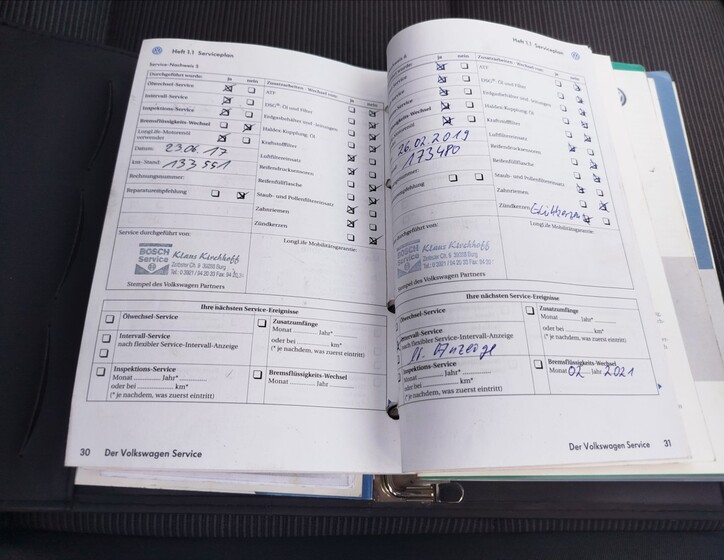 Heft 1.1 Serviceplan
Service-Nachweis 5
Durchgeführt wurde: ja nein
Ölwechsel-Service
Intervall-Service
Inspektions-Service
Bremsflüssigkeits-Wechsel
LongLife-Motorenöl
verwendet
Datum: 23.06.17
km-Stand: 133 551
Rechnungsnummer:
Reparaturempfehlung
Zusatzarbeiten - Wechsel von: ja nein
ATF
DSG®-Öl und Filter
Erdgasbehälter und -leitungen
Haldex-Kupplung: Öl
Kraftstofffilter
Luftfiltereinsatz
Reifendruckssensoren
Reifenfüllflasche
Staub- und Pollenfiltereinsatz
Zahnriemen
Zündkerzen
LongLife Mobilitätsgarantie:
Service durchgeführt von:
BOSCH
Service
Klaus Kirchhoff
Zerbster Ch. 9 39288 Burg
Tel.: 0 3921 / 94 20 33 Fax: 94 20 34
Stempel des Volkswagen Partners
Ihre nächsten Service-Ereignisse
Ölwechsel-Service
Intervall-Service
nach flexibler Service-Intervall-Anzeige
Inspektions-Service
Monat ........... Jahr* ...........
oder bei ........... km*
(* je nachdem, was zuerst eintritt)
Zusatzumfänge
Monat ........... Jahr* ...........
oder bei ........... km*
(* je nachdem, was zuerst eintritt)
Bremsflüssigkeits-Wechsel
Monat ........... Jahr ...........
30 Der Volkswagen Service
Heft 1.1 Serviceplan
ja nein
-Service
keits-Wechsel
26.02.2019
173480
Zusatzarbeiten - Wechsel von: ja nein
ATF
DSG®-Öl und Filter
Erdgasbehälter und -leitungen
Haldex-Kupplung: Öl
Kraftstofffilter
Luftfiltereinsatz
Reifendruckssensoren
Reifenfüllflasche
Staub- und Pollenfiltereinsatz
Zahnriemen
Zündkerzen
LongLife Mobilitätsgarantie:
durchgeführt von:
BOSCH
Service
Klaus Kirchhoff
Zerbster Ch. 9 39288 Burg
Tel.: 0 3921 / 94 20 33 Fax: 94 20 34
Stempel des Volkswagen Partners
Ihre nächsten Service-Ereignisse
Ölwechsel-Service
Intervall-Service
nach flexibler Service-Intervall-Anzeige
lt. Anzeige
Inspektions-Service
Monat ........... Jahr* ...........
oder bei ........... km*
(* je nachdem, was zuerst eintritt)
Zusatzumfänge
Monat ........... Jahr* ...........
oder bei ........... km*
(* je nachdem, was zuerst eintritt)
Bremsflüssigkeits-Wechsel
Monat 02 Jahr 2021
Der Volkswagen Service 31